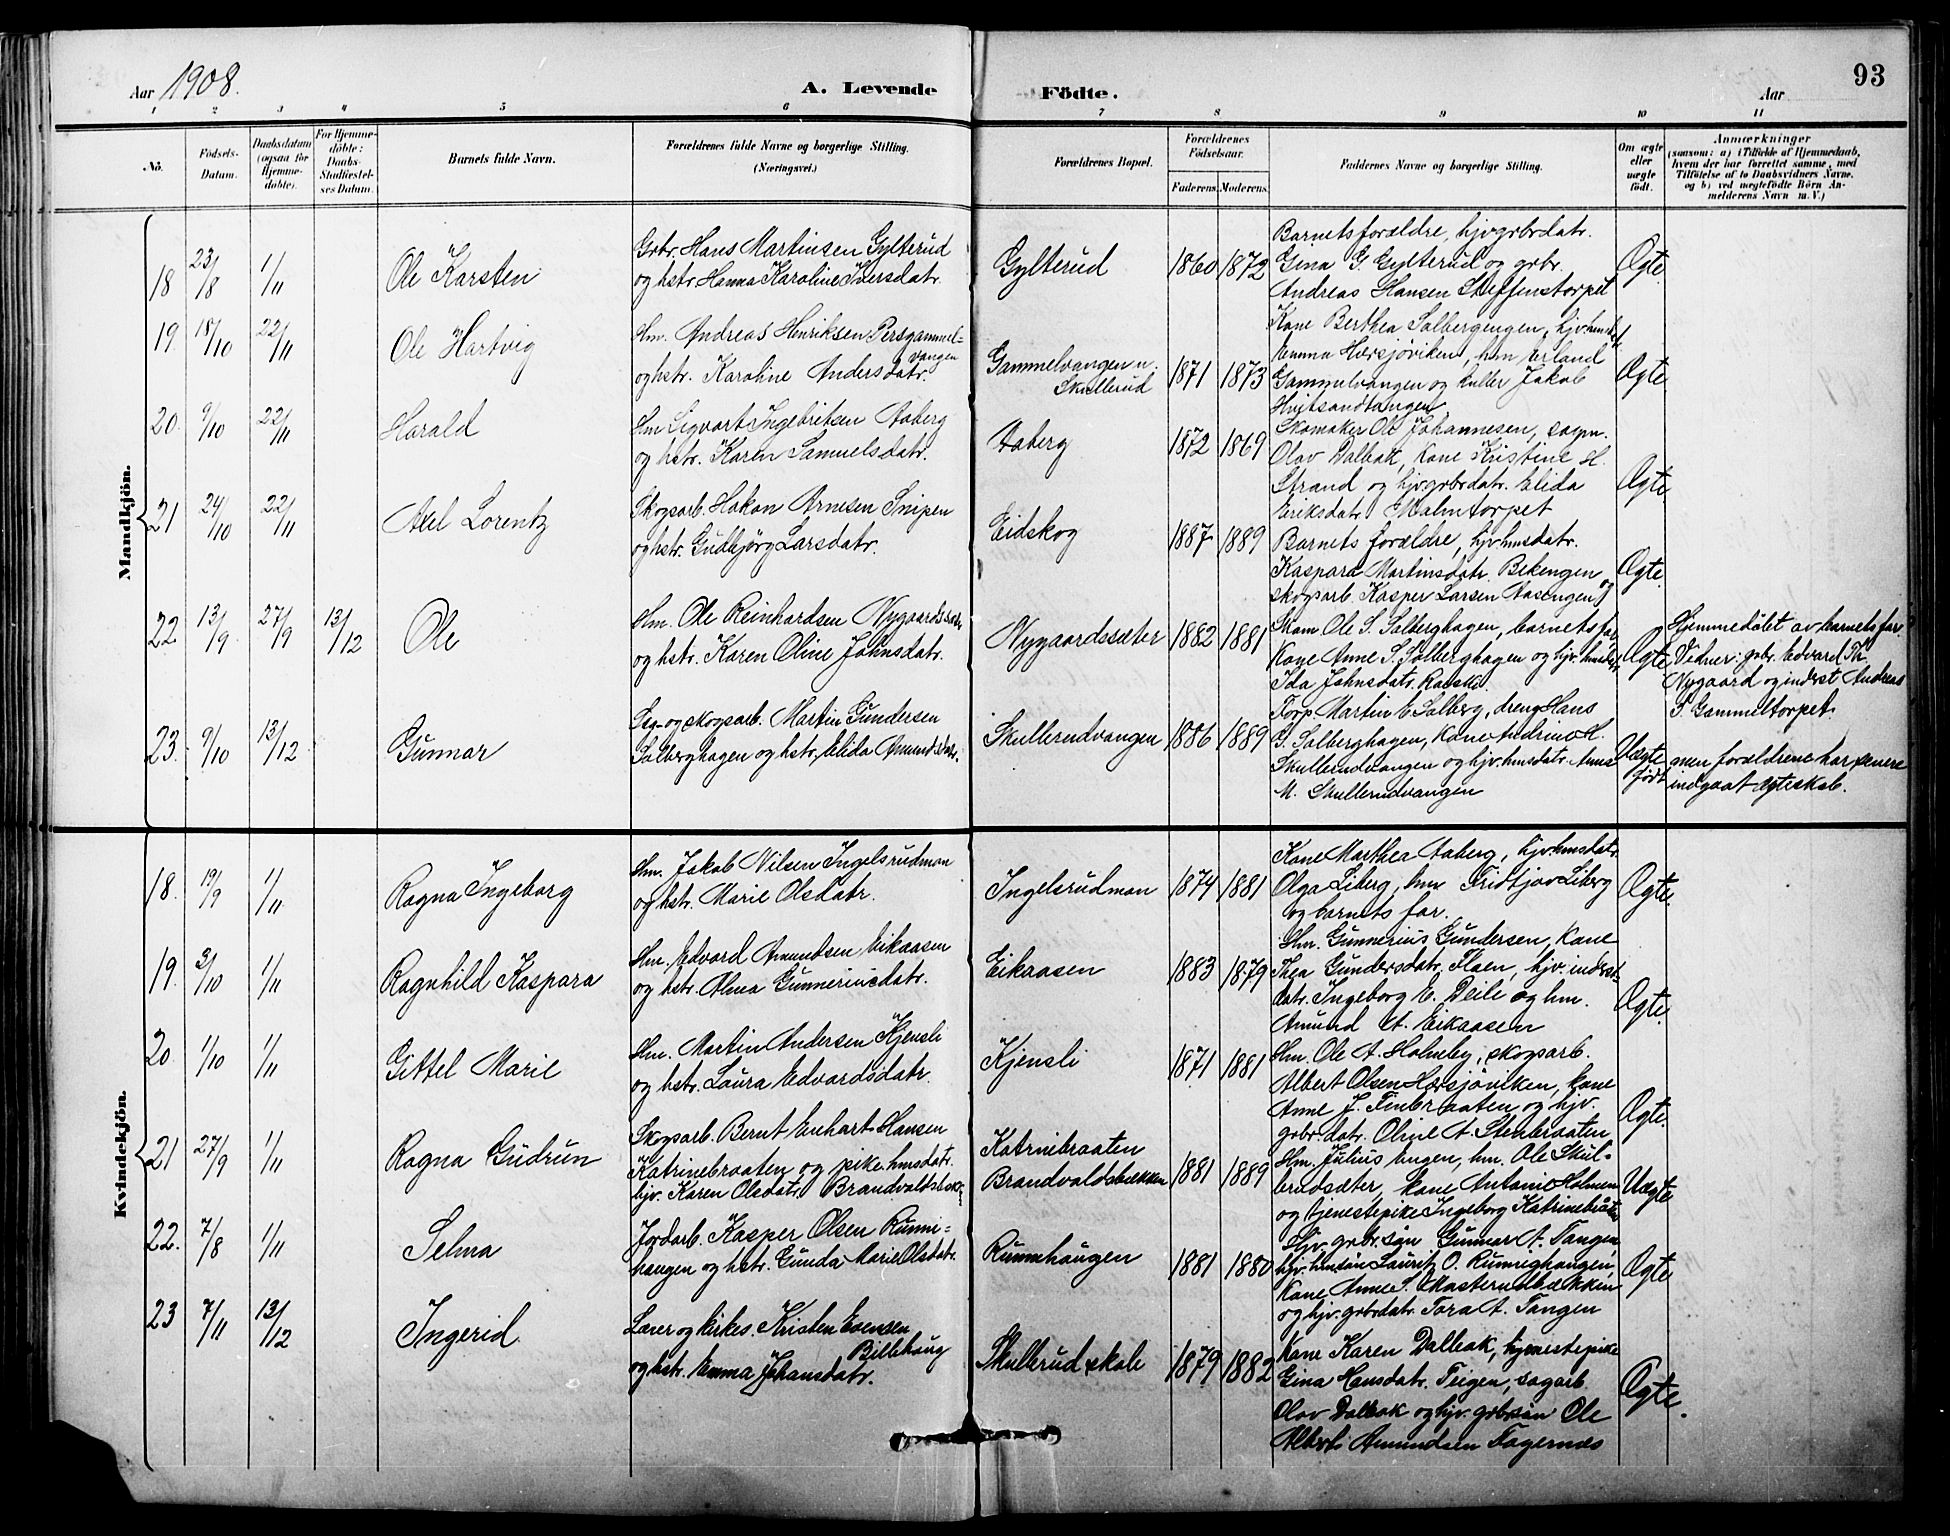 93
Aar 1908.
A. Levende Födte.
Aar
1 2 3 4 5 6 7 8 9 10 11
No.
Födsels-Datum.
Daabsdatum (ogsaa for Hjemme-döbte).
For Hjemme-döbte: Daabs-Stadfæstel-ses Datum.
Barnets fulde Navn.
Forældrenes fulde Navne og borgerlige Stilling.
(Næringsvei.)
Forældrenes Bopæl.
Forældrenes Födselsaar.
Faderens. Moderens.
Faddernes Navne og borgerlige Stilling.
Om ægte eller uægte födt.
Anmærkninger
(saasom: a) i Tilfælde af Hjemmedaab,
hvem der har forrettet samme, med
Tilföielse af to Daabsvidners Navne.
og b) ved uægtefödte Börn An-
melderens Navn m. V.)
Mandkjön.
18 23/8 1/11 Ole Karsten
Grbr. Hans Martinsen Gylterud
og hstr. Hanna Karoline Iversdatr.
Gylterud 1860 1872
Barnets forældre, hjv. grbrdatr.
Gina G. Gylterud og grbr.
Andreas Hansen Steffenstorpet
Ægte.
19. 18/10 22/11 Ole Hartvig
Hm. Andreas Henriksen Persgammel-
vangen
og hstr. Karoline Andersdatr.
Gammelvangen u.
Skullerud 1871 1873
Kone Berthea Solbergengen, hjv. hmsdatr
Emma Hærsjöviken, hm Erland
Gammelvangen og Jakob
Hvitsandtangen
Ægte
20. 9/10 22/11 Harald
Hm Sigvart Ingebritsen Aaberg
og hstr. Karen Samuelsdatr.
Aaberg 1872 1869
Skomaker Ole Johannesen, sagm.
Olav Dalbak, Kone Kristine H.
Strand og hjv. grbrdatr. Elida
Eriksdatr. Malmtorpet
Ægte
21 24/10 22/11 Axel Lorentz
Skogsarb. Hakon Arnesen Snipen
og hstr. Gudbjörg Larsdatr.
Eidskog 1887 1889
Barnets forældre, hjv. hmsdatr.
Kaspara Martinsdatr. Bekengen og
skogsarb. Kasper Larsen Aasengen
Ægte.
22 13/9 27/9 13/12 Ole
Hm. Ole Reinhardsen Nygaardssæter
og hstr. Karen Oline Johnsdatr.
Nygaardssæter 1882 1881
Ole S. Solberghagen, barnets far,
Kone Anne S. Solberghagen og hjv. hmsdatr.
Ida Johnsdatr.
Ægte
Hjemmedöbt av barnets far
Vidner: grbr. Edvard Th.
Nygaard og inderst Andreas
S. Gammeltorpet.
23. 9/10 13/12 Gunnar
Sag- og skogsarb. Martin Gundersen
Solberghagen og hstr. Elida Amundsdatr.
Skullerudvangen 1886 1889
Martin E. Solberg, dreng Hans
G. Solberghagen, Kone Andrine H.
Skullerudvangen og hjv. hmsdatr. Anna
M. Skullerudvangen
Uægte
född
men forældrene har senere
indgaat Ægteskab.
Kvindekjön.
18. 19/9 1/11 Ragna Ingeborg
Hm. Jakob Nilsen Ingelsrudmon
og hstr. Marie Olsdatr.
Ingelsrudmon 1874 1881
Kone Marthea Aaberg, hjv. hmsdatr.
Olga Liberg, hm Fridtjov Liberg
og barnets far.
Ægte.
19. 3/10 1/11 Ragnhild Kaspara
Hm. Edvard Amundsen Eikaasen
og hstr. Alma Gunneriusdatr.
Eikaasen 1883 1879
Hm. Gunnerius Gundersen, Kone
Thea Gundersdatr. Flaen, hjv. inderst-
datr. Ingeborg E. Deili og hm.
Amund A. Eikaasen
Ægte.
20 1/10 1/11 Gittel Marie
Hm. Martin Andersen Kjensli
og hstr. Laura Edvardsdatr.
Kjensli 1871 1881
Hm. Ole A. Holmeby, skogsarb.
Albert Olsen Hærsjöviken, kone
Anne J. Finbraaten og hjv.
grbr. datr. Oline A. Stenbraaten
Ægte.
21 27/9 1/11 Ragna Gudrun
Skogsarb. Bernt Enhart Hansen
Katrinebraaten og pike hmsdatr.
hjv. Karen Olsdatr. Brandvoldsbæk
Katrinebraaten
Brandvoldsbækken 1881 1889
Hm. Julius Engen, hm. Ole Skul-
brudsæter, kone Antonie Holmen
og tjenestepike Ingeborg Katrinebraaten
Uægte
22. 7/8 1/11 Selma
Jordarb. Kasper Olsen Runni-
haugen og hstr. Gunda Marie Olsdatr.
Runnhaugen 1881 1880
Hjv. grbr. sön Gunnar A. Tangen,
hjv. hmsön Lauritz O. Runnighaugen,
Kone Anne S. Masterudbækken
og hjv. grbrdatr. Tora A. Tangen
Ægte
23 7/11 13/12 Ingerid
Lærer og kirkes. Kristen Evensen
Billehaug
og hstr. Emma Johansdatr.
Skullerud skole 1879 1882
Kone Karen Dalbak, tjenestepike
Gina Hansdatr. Teigen, sagarb.
Olav Dalbak og hjv. grbrsön Ole
Albert Amundsen Fagernæs
Ægte.